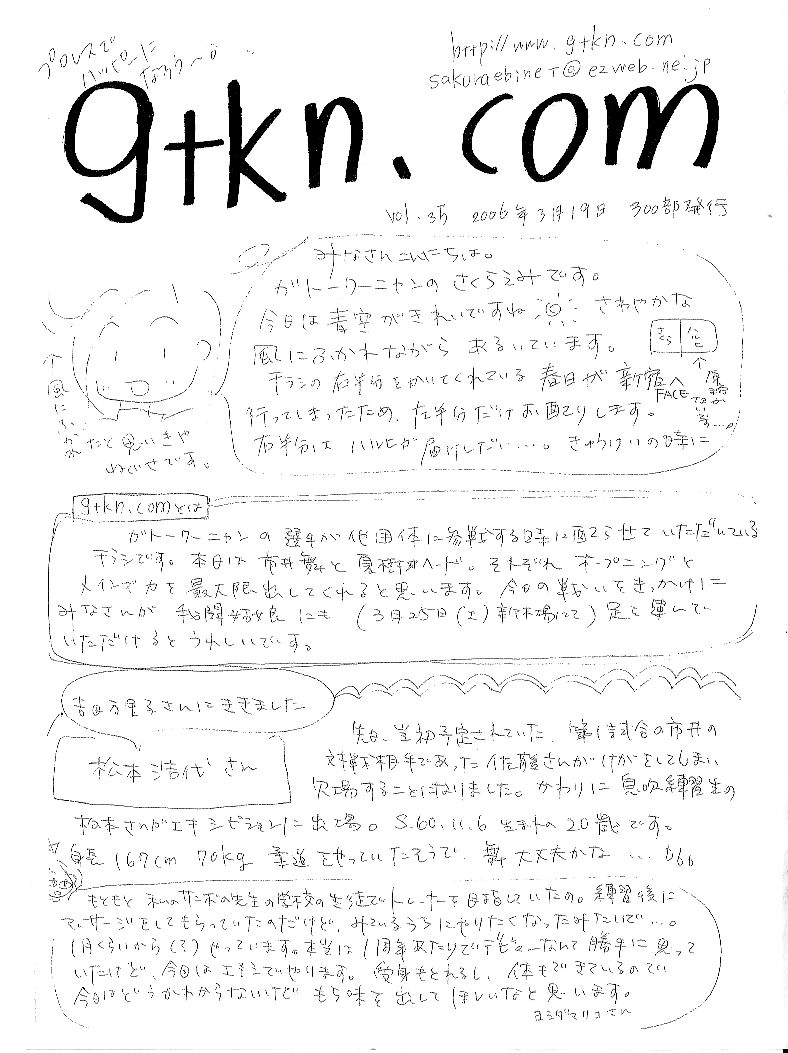 プロレスで
ハッピーに
なろう〜♪
http://www.gtkn.com
sakuraebinet@ezweb.ne.jp
gtkn.com
vol.35 2006年3月19日 300部発行
みなさんこんにちは。
ガトームーニャンの さくらえみです。
今日は青空がきれいですね さわやかな
風にふかれながら あるいています。
チラシの右半分をかいてくれている 春日が新宿FACEへ
行ってしまったため、左半分だけお配りします。
右半分は ハルヒが届けしだい…。きゅうけいの時に
さくら
ハルヒ
↑
↑風にふかれたと思いきや
ねぐせです。
gtkn.comとは
ガトームーニャンの選手が他団体に参戦する時に配らせていただいている
チラシです。本日は市井舞と 。それぞれ オープニングと
メインで力を最大限出してくれると思います。今日の戦いをきっかけに
みなさんが 我闘姑娘にも (3月25日(土)新木場にて) 足を運んで
いただけるとうれしいです。
吉田万里子さんにききました
松本浩代さん
先日、当初予定されていた、第1試合の市井の
対戦相手であった佐藤さんがけがをしてしまい
欠場することになりました。かわりに 息吹練習生の
松本さんがエキシビションに出場。S.60.11.6 生まれの20歳です。
身長167cm 70kg 柔道をやっていたそうで、舞 大丈夫かな…
もともと 私のサンボの先生の学校の生徒でトレーナーを目指していたの。練習後に
マッサージをしてもらっていたのだけど、みているうちにやりたくなったみたいで…。
1月くらいから(?)やっています。本当は1周年あたりでデビューなんて勝手に思って
いたけど、今日はエキシでやります。受身もとれるし、体もできているので
今日はどうかわからないけど もち味を出してほしいなと思います。
ヨシダマリコさん